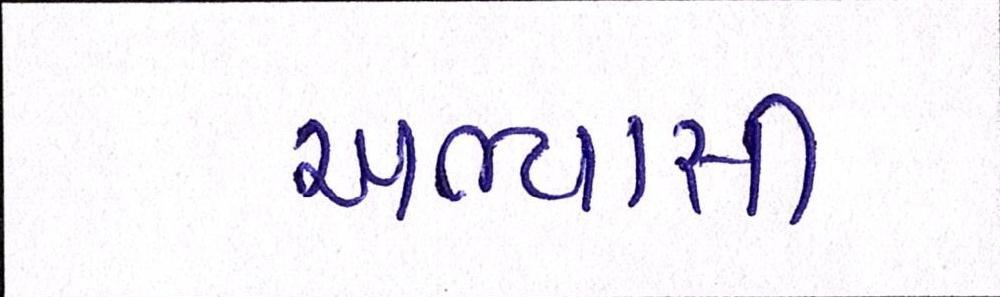 અભ્યાસી